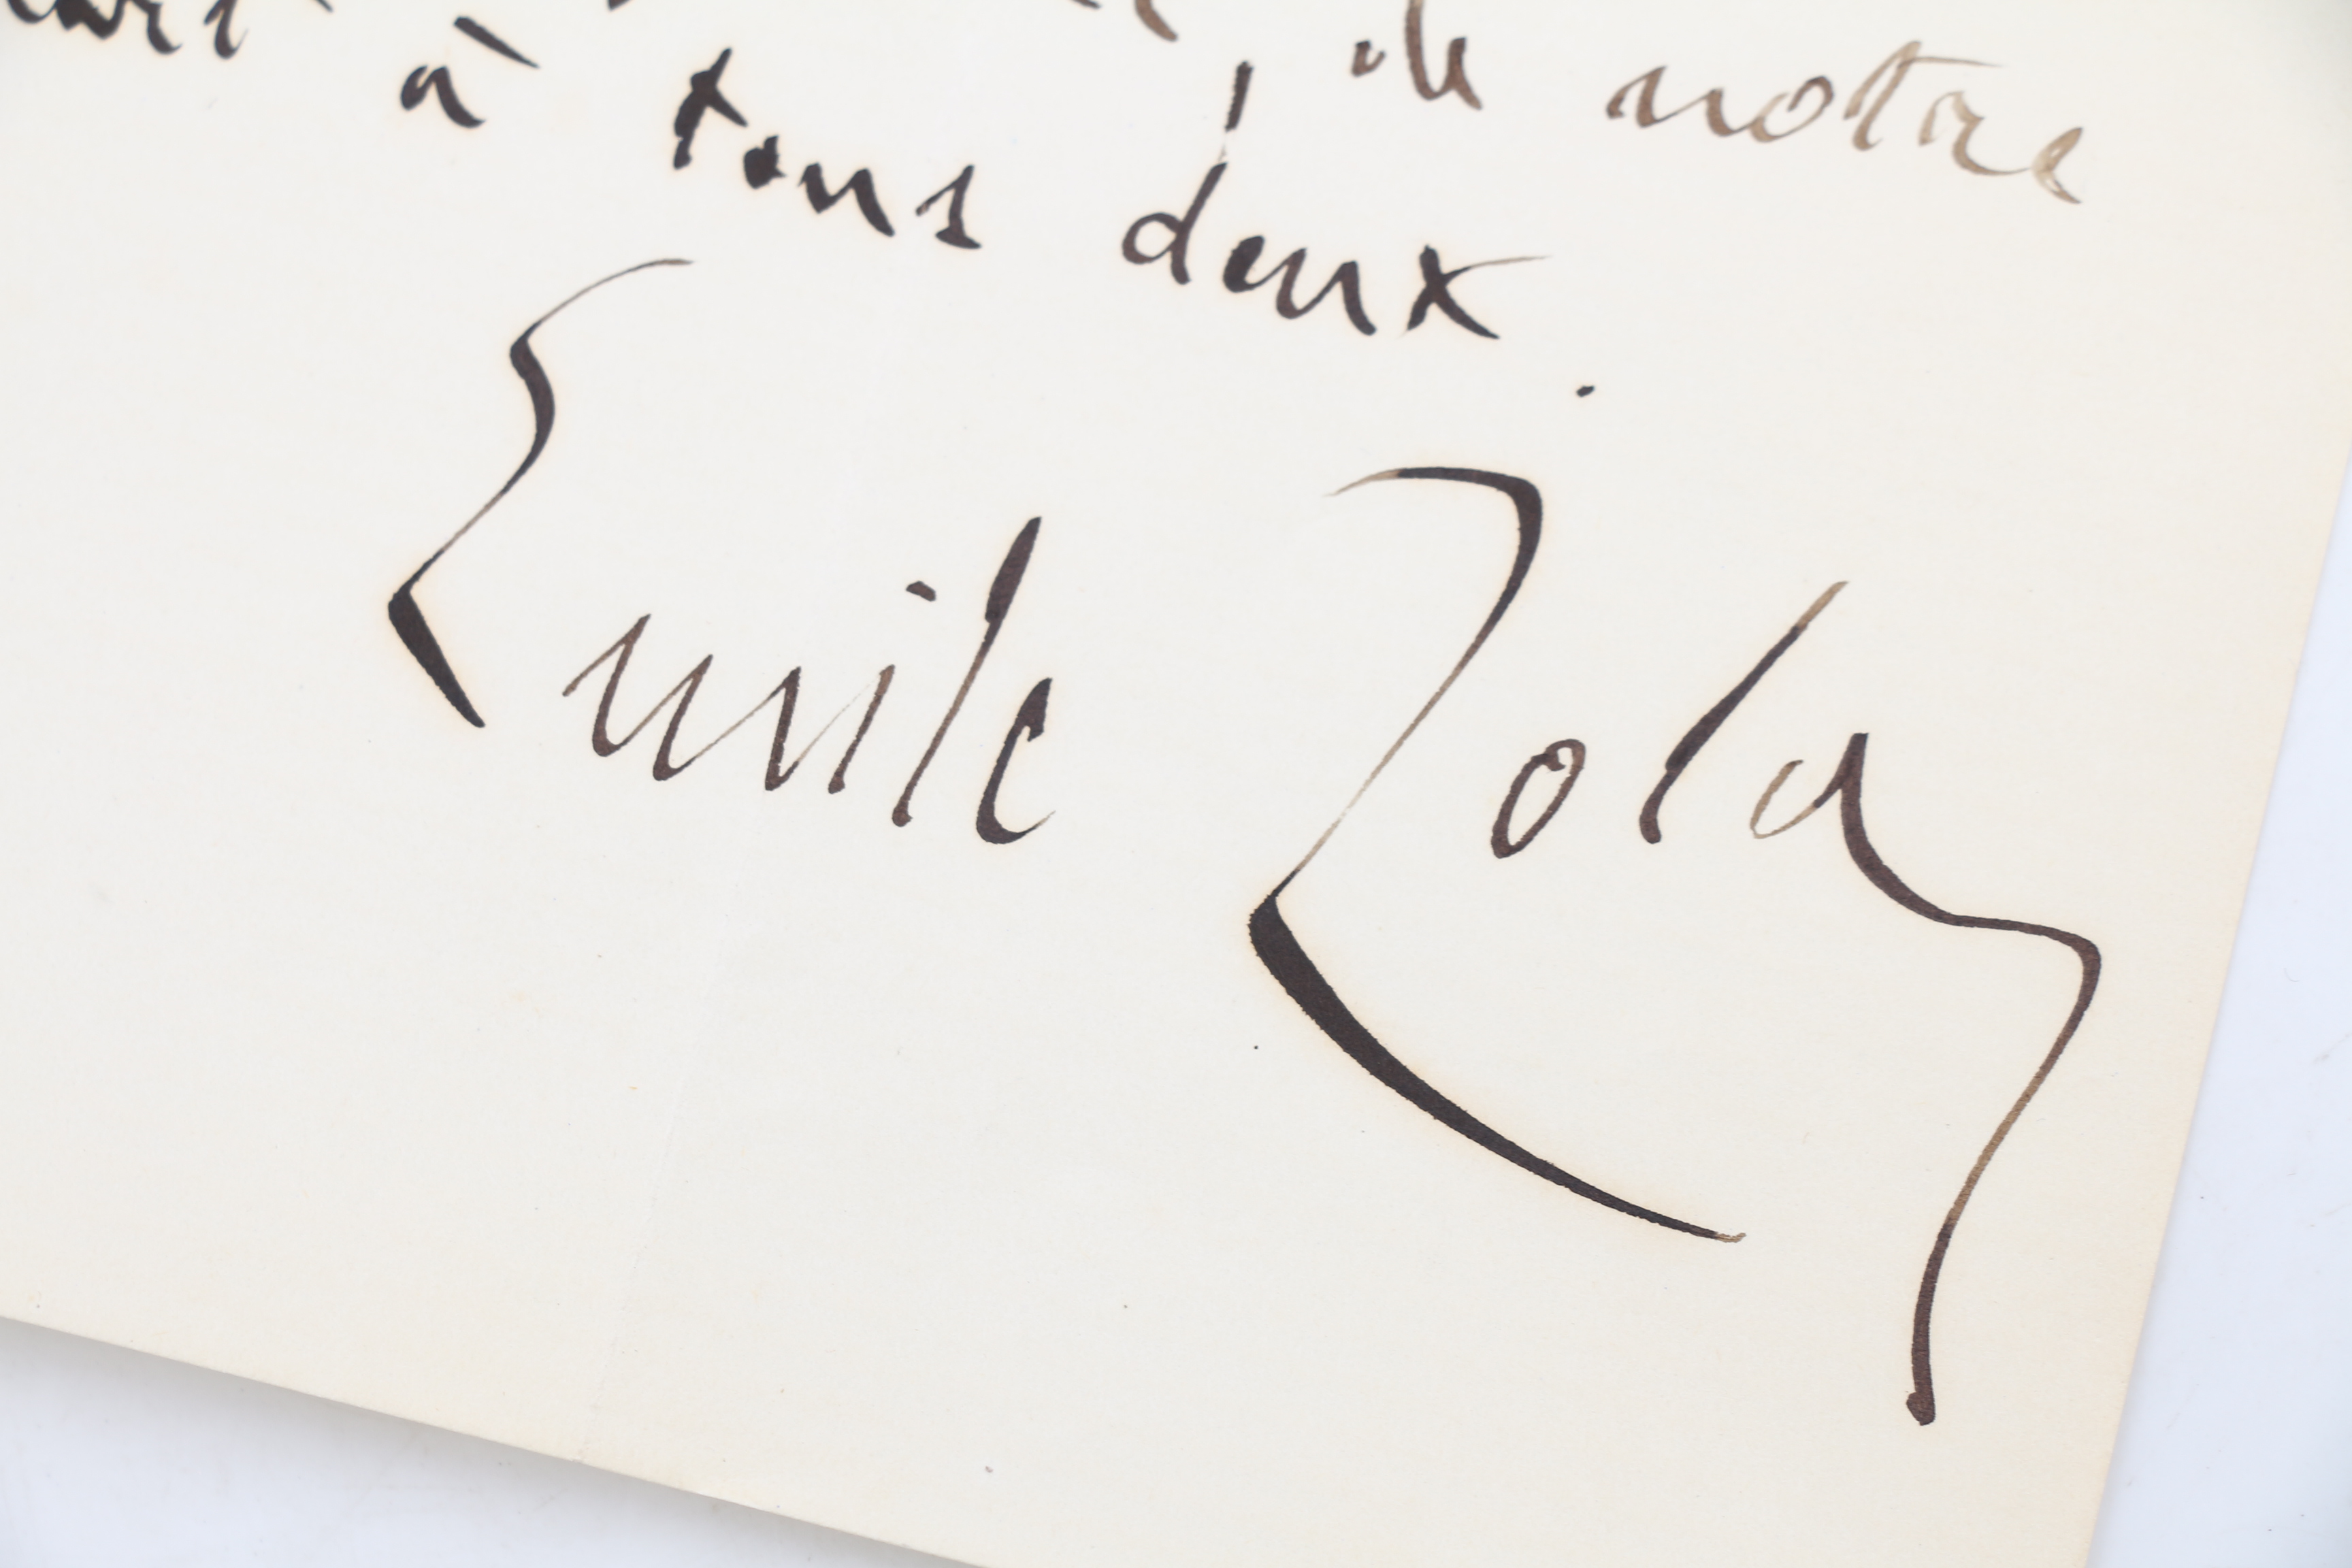 de notre
à tous deux.
Emile Zola